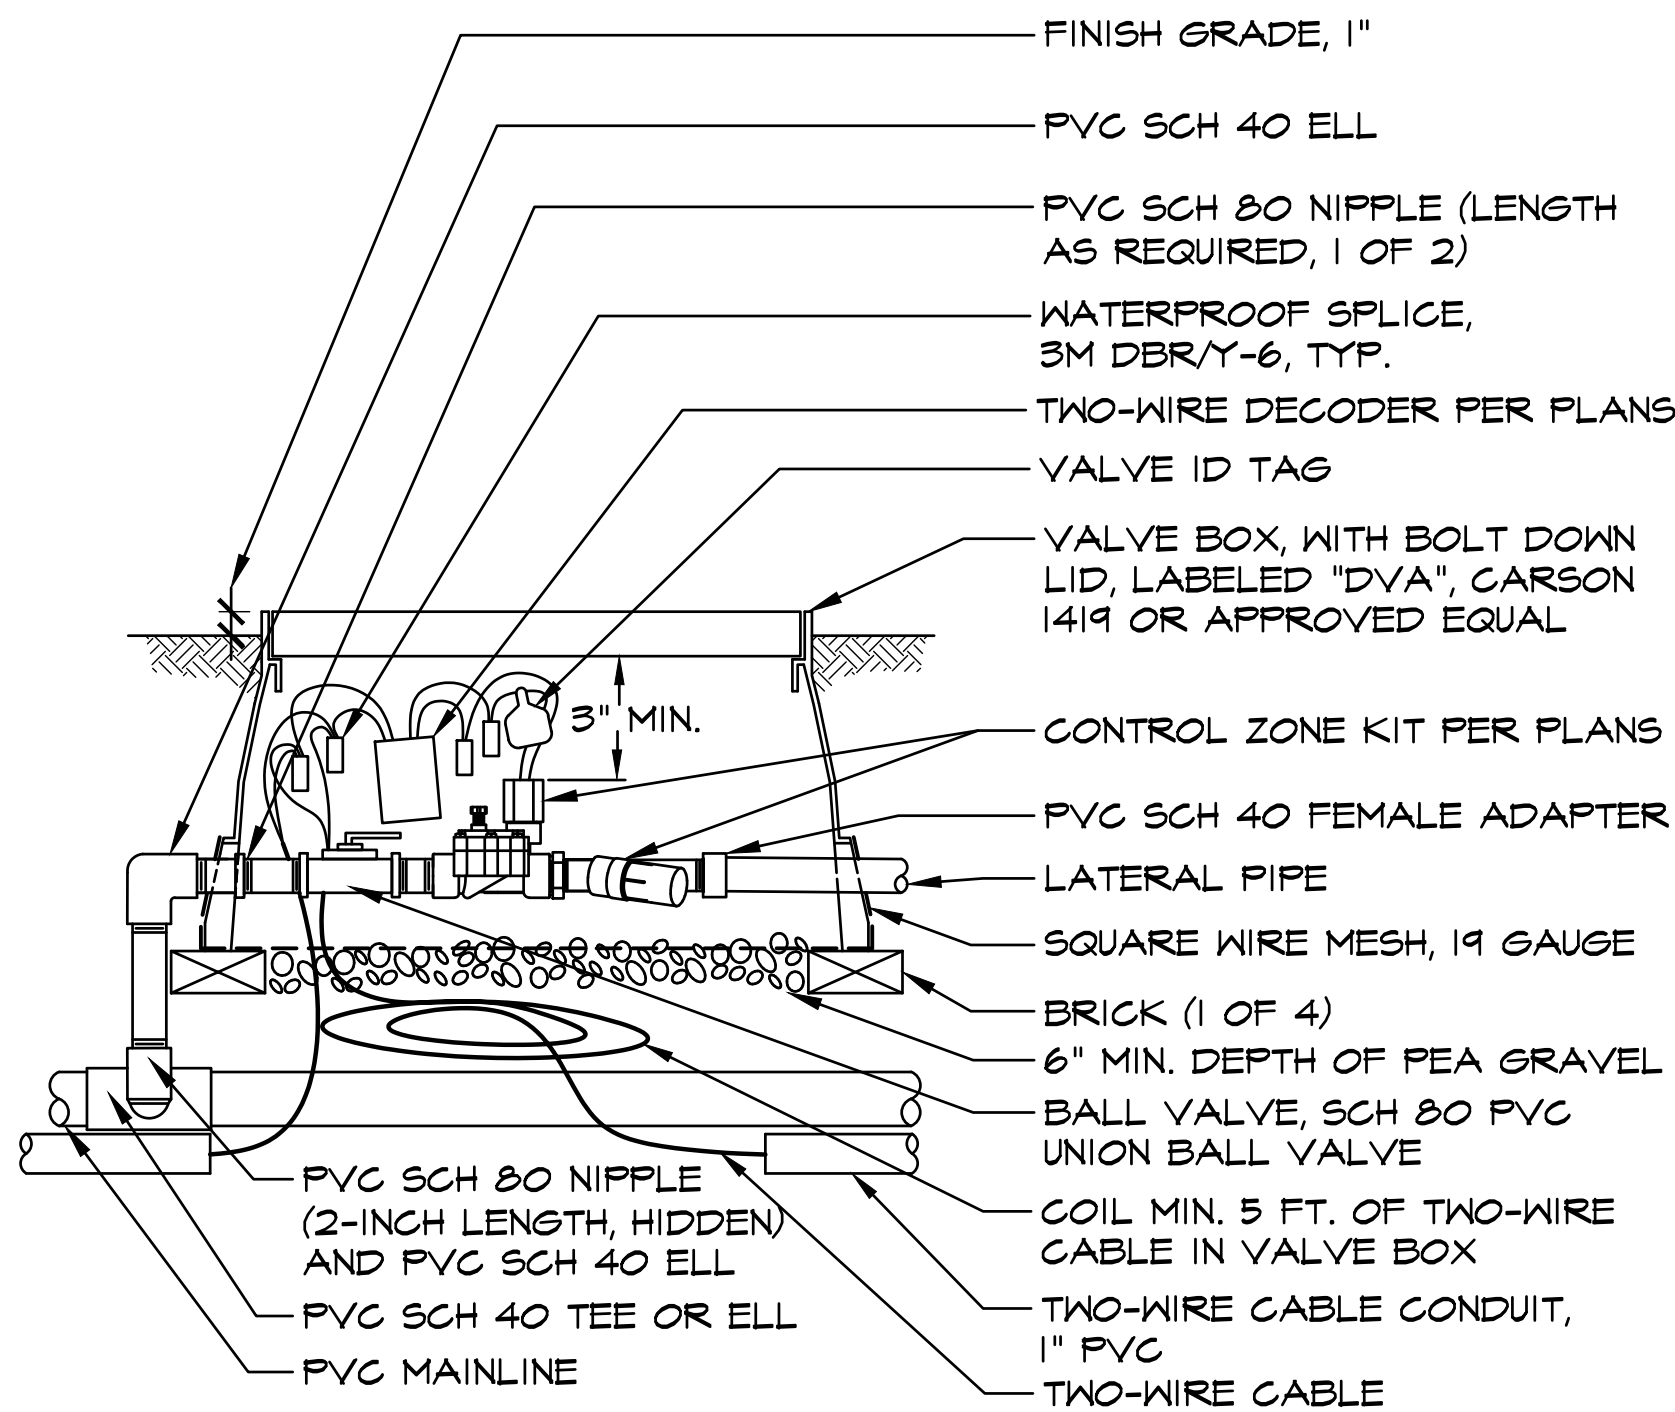 FINISH GRADE, 1"
PVC SCH 40 ELL
PVC SCH 80 NIPPLE (LENGTH
AS REQUIRED, 1 OF 2)
WATERPROOF SPLICE,
3M DBR/Y-6, TYP.
TWO-WIRE DECODER PER PLANS
VALVE ID TAG
VALVE BOX, WITH BOLT DOWN
LID, LABELED "DVA", CARSON
1419 OR APPROVED EQUAL
3" MIN.
CONTROL ZONE KIT PER PLANS
PVC SCH 40 FEMALE ADAPTER
LATERAL PIPE
SQUARE WIRE MESH, 19 GAUGE
BRICK (1 OF 4)
6" MIN. DEPTH OF PEA GRAVEL
BALL VALVE, SCH 80 PVC
UNION BALL VALVE
COIL MIN. 5 FT. OF TWO-WIRE
CABLE IN VALVE BOX
TWO-WIRE CABLE CONDUIT,
1" PVC
TWO-WIRE CABLE
PVC SCH 80 NIPPLE
(2-INCH LENGTH, HIDDEN)
AND PVC SCH 40 ELL
PVC SCH 40 TEE OR ELL
PVC MAINLINE